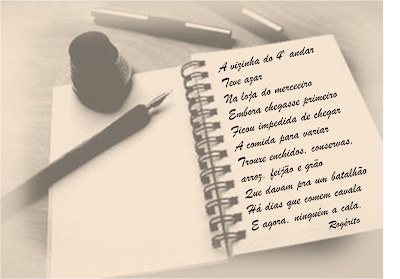 A vizinha do 4º andar
Teve azar
Na loja do merceeiro
Embora chegasse primeiro
Ficou impedida de chegar
A comida para variar
Trouxe enchidos, conservas,
arroz, feijão e grão
Que davam pra um batalhão
Há dias que comem cavala
E agora, ninguém a cala.
Rogérito